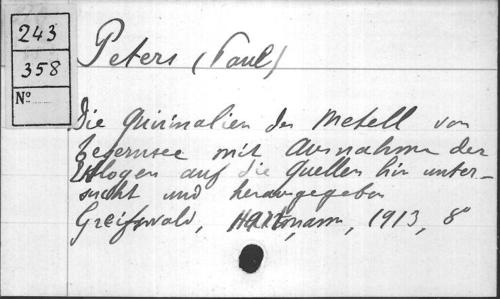 243
358
Nº
Peters (Paul)
Die Quirinalien des Metell von
Tegernsee mit Ausnahme der
Eklogen auf die Quellen hin unter-
sucht und herausgegeben
Greifswald, Hartmann, 1913, 8°